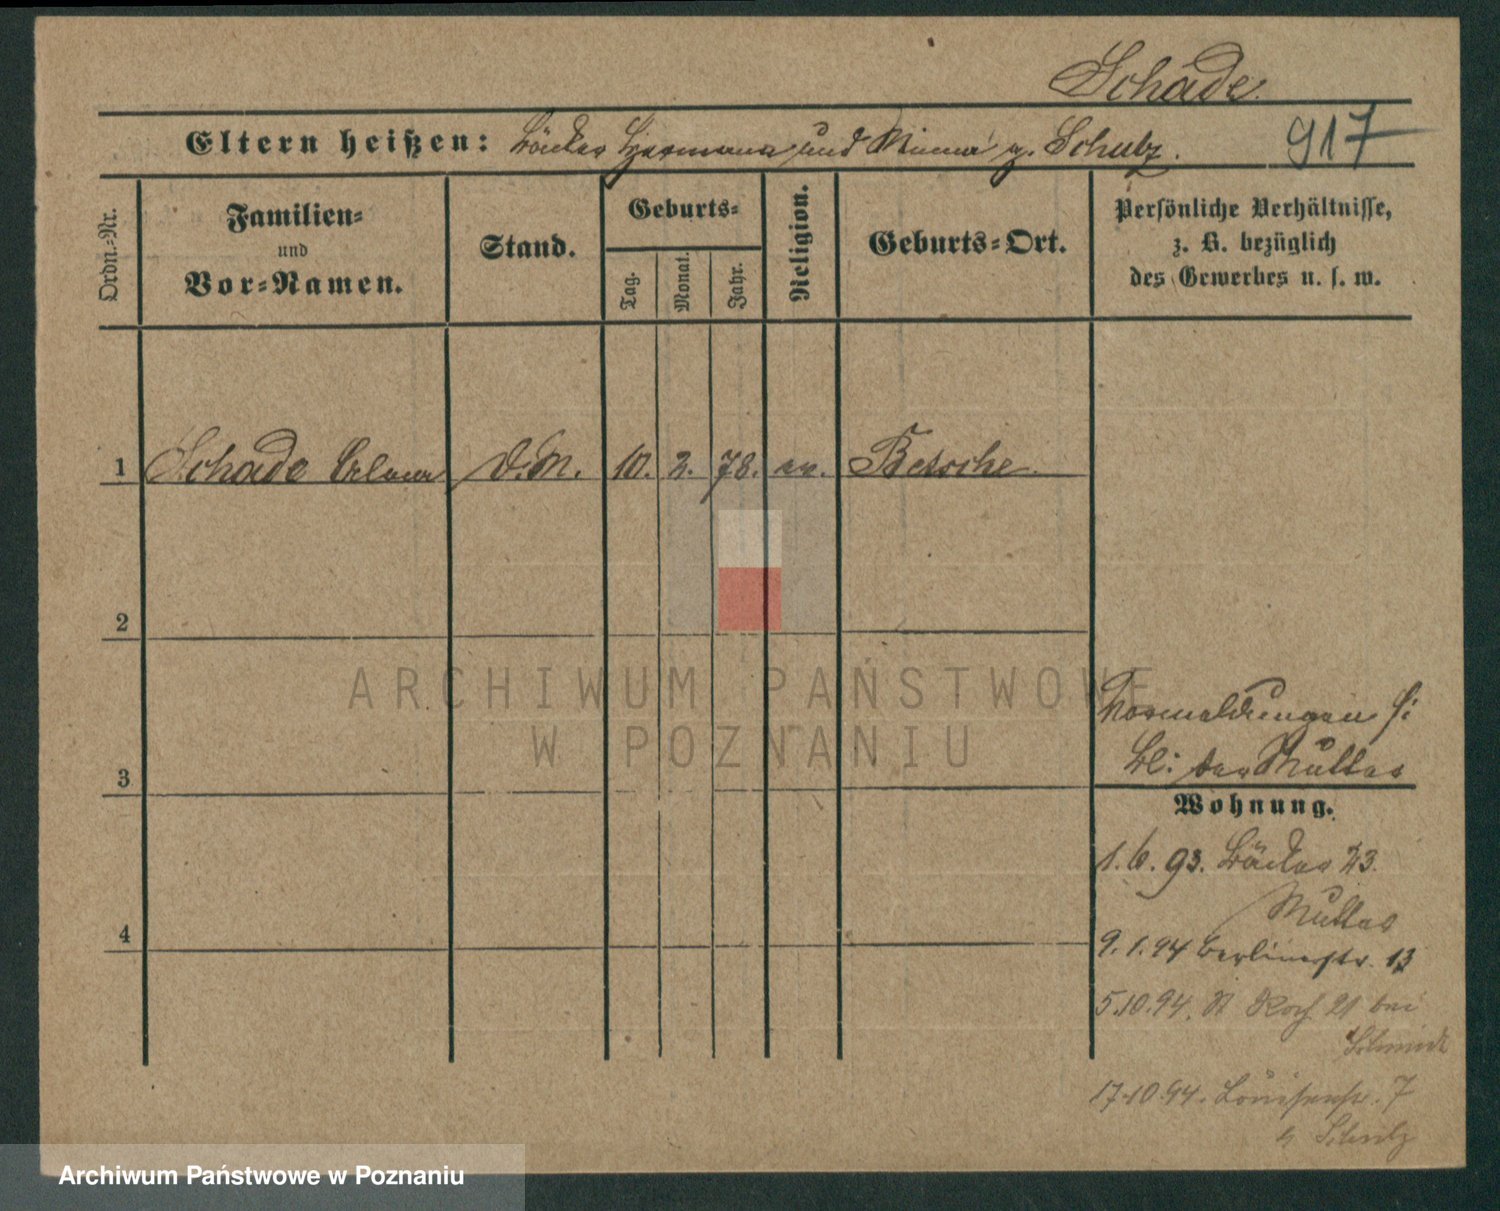 Schade.
Eltern heißen: Hermann und Minna g. Schulz.
917
Ordn.-Nr.
Familien-
und
Vor-Namen.
Stand.
Geburts-
Tag.
Monat.
Jahr.
Religion.
Geburts-Ort.
Persönliche Verhältnisse,
z. B. bezüglich
des Gewerbes u. s. w.
1 Schade D.M. 10. 2. 78. ev. Betsche.
2
3
4
bei der Mutter
Wohnung.
1.6.93. Bäcker 23.
Mutter
9.1.94 Berlinerstr. 13
5.10.94. St Roch 21 bei
Schmidt
17.10.94. Louisenstr. 7
b Schulz
ARCHIWUM PAŃSTWOWE
W POZNANIU
Archiwum Państwowe w Poznaniu